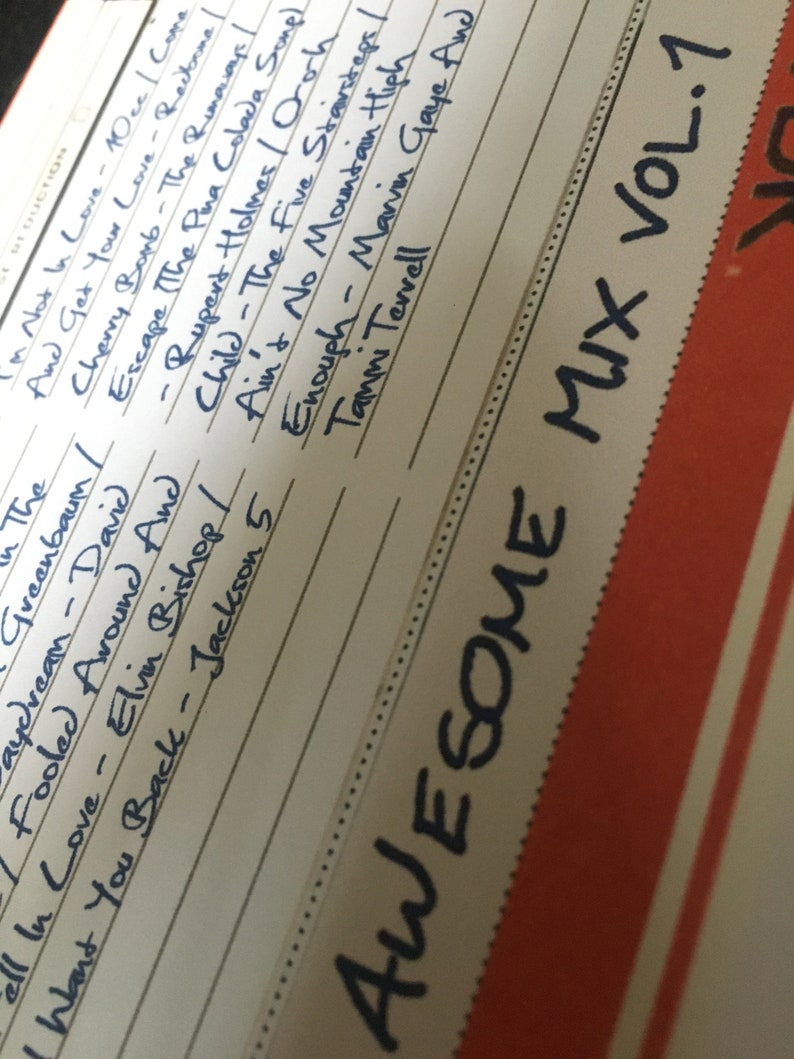 REDUCTION
I'm Not In Love - 10cc / Come
And Get Your Love - Redbone /
Cherry Bomb - The Runaways /
Escape (The Pina Colada Song)
- Rupert Holmes / O-o-h
Child - The Five Stairsteps /
Ain't No Mountain High
Enough - Marvin Gaye And
Tammi Terrell
In The
Greenbaum /
aydream - David
/ Fooled Around And
ell In Love - Elvin Bishop /
I Want You Back - Jackson 5
AWESOME MIX VOL.1